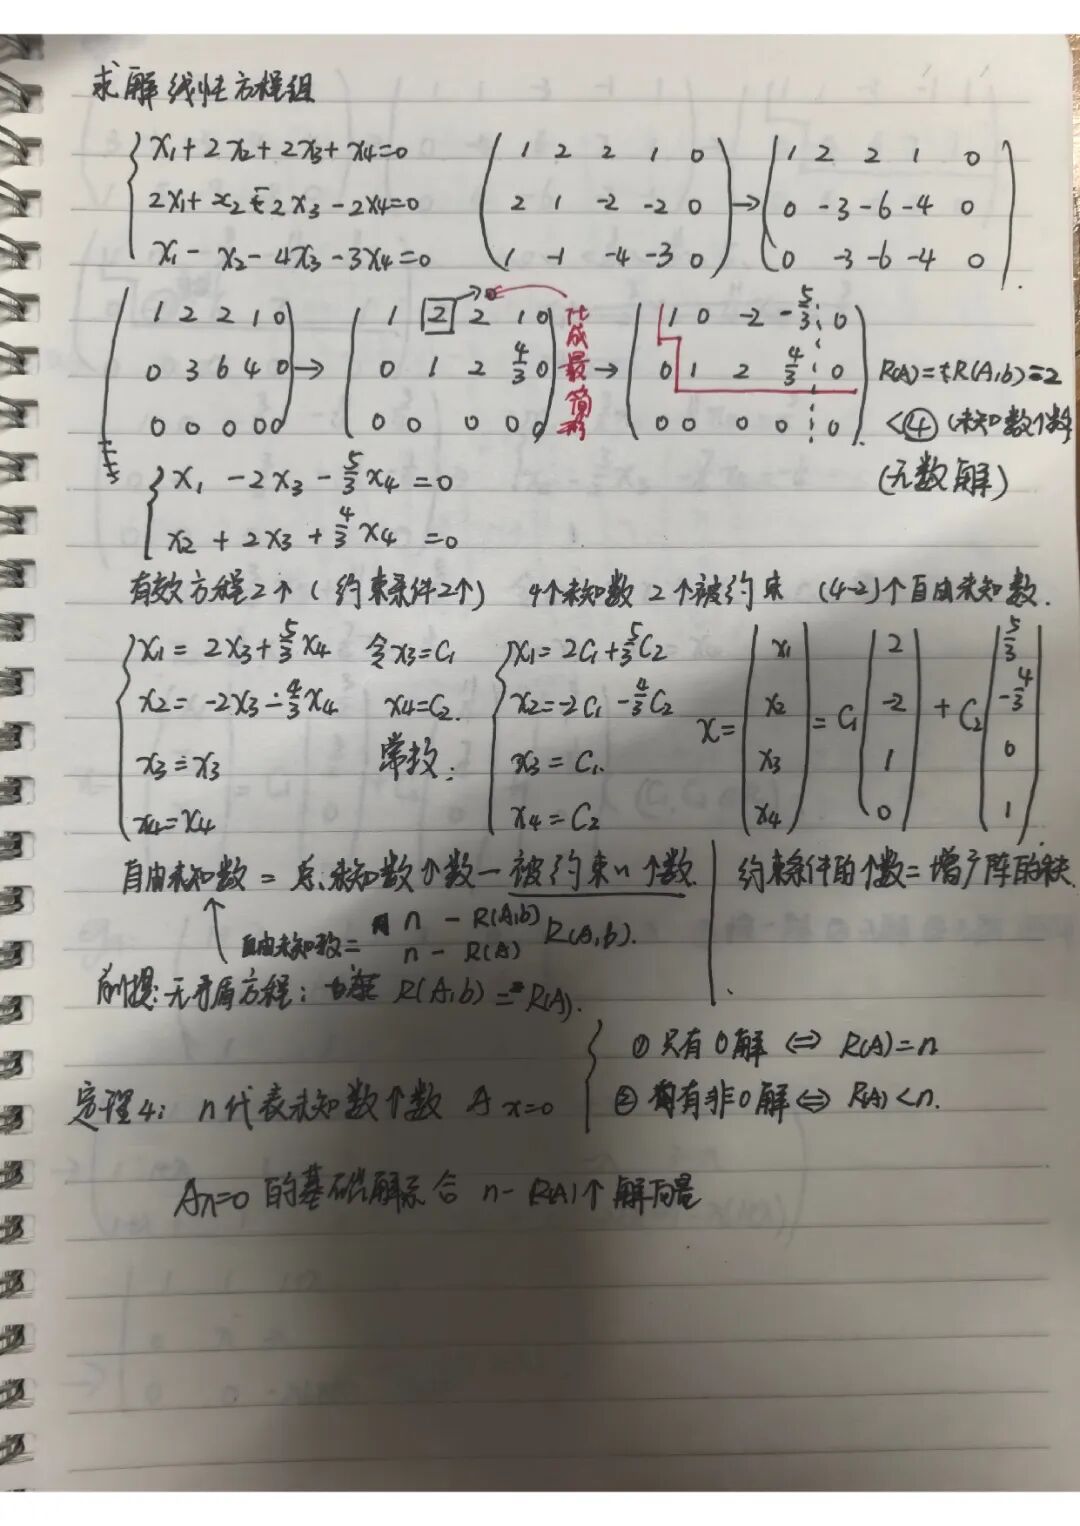 求解线性方程组
x₁+2x₂+2x₃+x₄=0
2x₁+x₂-2x₃-2x₄=0
x₁-x₂-4x₃-3x₄=0
1 2 2 1 0
2 1 -2 -2 0
1 -1 -4 -3 0
→
1 2 2 1 0
0 -3 -6 -4 0
0 -3 -6 -4 0
1 2 2 1 0
0 3 6 4 0
0 0 0 0 0
→
1 2 2 1 0
0 1 2 4/3 0
0 0 0 0 0
0
化成最简形
→
1 0 -2 -5/3 0
0 1 2 4/3 0
0 0 0 0 0
R(A)=R(A,b)=2
<④(未知数个数
(无数解)
x₁-2x₃-5/3x₄=0
x₂+2x₃+4/3x₄=0
有效方程2个(约束条件2个) 4个未知数 2个被约束 (4-2)个自由未知数.
x₁=2x₃+5/3x₄
x₂=-2x₃-4/3x₄
x₃=x₃
x₄=x₄
令x₃=C₁
x₄=C₂.
常数.
x₁=2C₁+5/3C₂
x₂=-2C₁-4/3C₂
x₃=C₁.
x₄=C₂
x=
x₁
x₂
x₃
x₄
=C₁
2
-2
1
0
+C₂
5/3
-4/3
0
1
自由未知数=总未知数个数-被约束n个数.
约束条件的个数=增广阵的秩.
自由未知数= n-R(A,b) R(A,b).
n-R(A)
前提:无矛盾方程: R(A,b)=R(A).
定理4: n代表未知数个数 Ax=0
① 只有0解⇔R(A)=n
② 有非0解⇔R(A)<n.
Ax=0的基础解系含n-R(A)个解向量